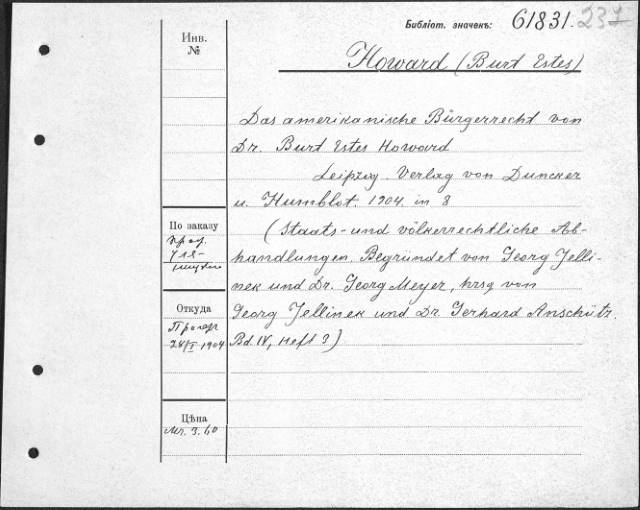 Библіот. значекъ: 61831. 231
Инв.
№
Howard (Burt Estes)
Das amerikanische Bürgerrecht von
Dr. Burt Estes Howard
Leipzig. Verlag von Duncker
u. Humblot. 1904. in 8
(Staats- und völkerrechtliche Ab-
handlungen. Begründet von Georg Jelli-
nek und Dr. Georg Meyer, hrsg von
Georg Jellinek und Dr. Gerhard Anschütz.
Bd. IV, Heft 3)
По заказу
проф.
Откуда
24/I 1904
Цѣна
Mr. 3. 60